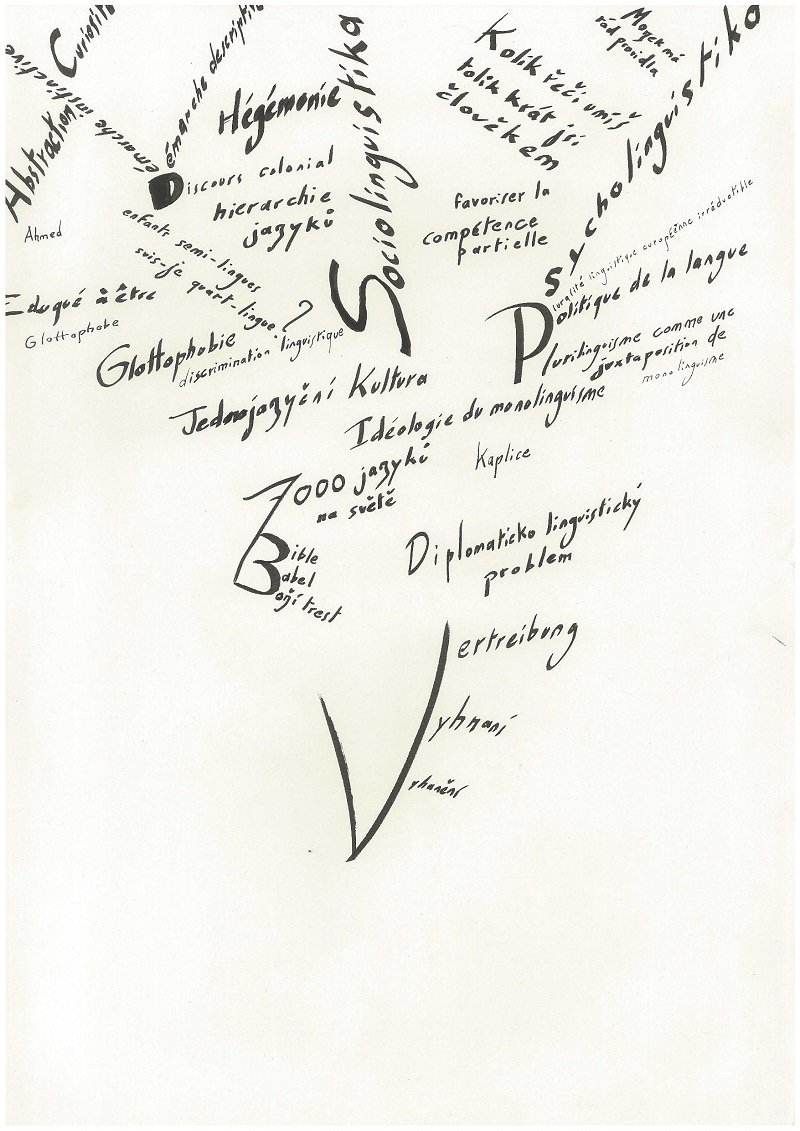 Curiosité
Démarche descriptive
Démarche instinctive
Abstraction
Ahmed
Hégémonie
Discours colonial
hierarchie
jazyků
Sociolinguistika
Kolik řečí umíš
tolik krát jsi
člověkem
Mozek má
rád pravidla
Psycholinguistika
favoriser la
compétence
partielle
enfants semi-lingues
suis-je quart-lingue?
Eduqué à être
Glottophobe
Glottophobie
discrimination linguistique
Pluralité linguistique européenne irréductible
Politique de la langue
Plurilinguisme comme une
juxtaposition de
monolinguisme
Jednojazyční Kultura
Idéologie du monolinguisme
7000 jazyků
na světě
Kaplice
Bible
Babel
Boží trest
Diplomaticko linguistický
problem
Vertreibung
Vyhnaní